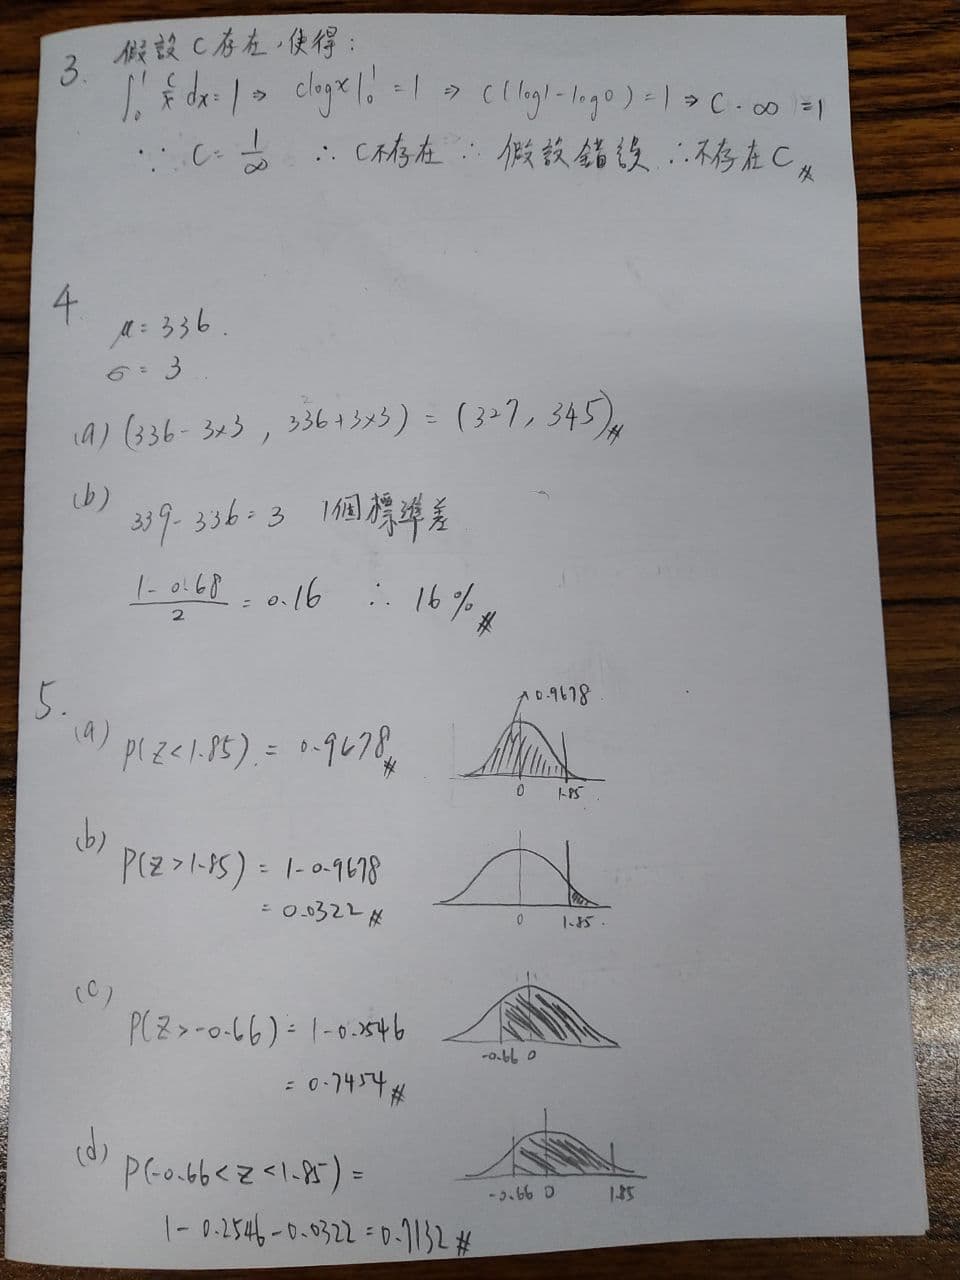 3. 假設 C 存在，使得：
∫₀¹ c/x dx = 1 ⇒ clogx|₀¹ = 1 ⇒ c(log1 - log0) = 1 ⇒ C · ∞ = 1
∵ C = 1/∞ ∴ C不存在 ∴ 假設錯誤 ∴不存在C #
4
μ = 336.
σ = 3
(a) (336 - 3×3, 336 + 3×3) = (327, 345) #
(b) 339 - 336 = 3 1個標準差
(1 - 0.68)/2 = 0.16 ∴ 16% #
5.
(a) P(Z < 1.85) = 0.9678 #
0.9678
0 1.85
(b) P(Z > 1.85) = 1 - 0.9678
= 0.0322 #
0 1.85
(c) P(Z > -0.66) = 1 - 0.2546
= 0.7454 #
-0.66 0
(d) P(-0.66 < Z < 1.85) =
1 - 0.2546 - 0.0322 = 0.7132 #
-0.66 0 1.85